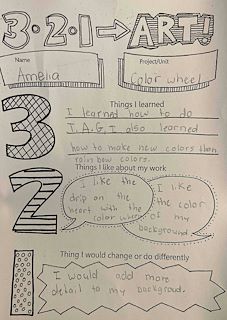 3·2·1→ART!
Name
Project/Unit
Amelia
Color wheel
3
Things I learned
I learned how to do
T.A.G. I also learned
how to make new colors than
rainbow colors.
2
Things I like about my work
I like the
drip on the
heart with the
color wheel
I like
the color
of my
background
1
Thing I would change or do differently
I would add more
detail to my backgroud.